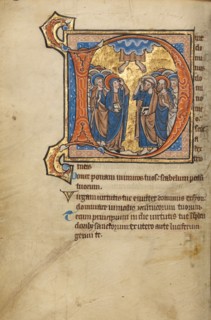 meis
Donec ponam inimicos tuos: scabellum pedum
tuorum.
Virgam virtutis tue emittet dominus ex syon
dominare in medio inimicorum tuorum.
Tecum principium in die virtutis tue in splen
doribus sanctorum ex utero ante luciferum
genui te.